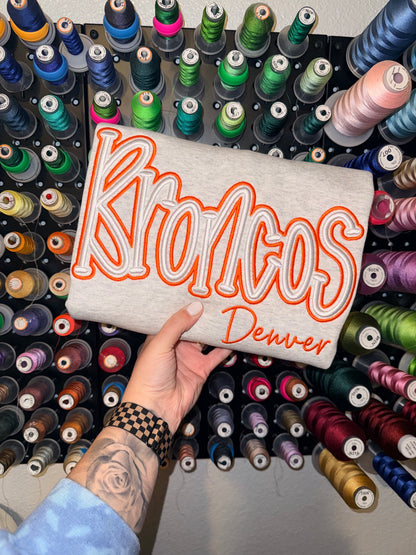 Broncos
Denver